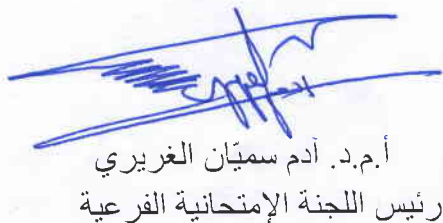 أ.م.د. آدم سميّان الغريري
رئيس اللجنة الإمتحانية الفرعية